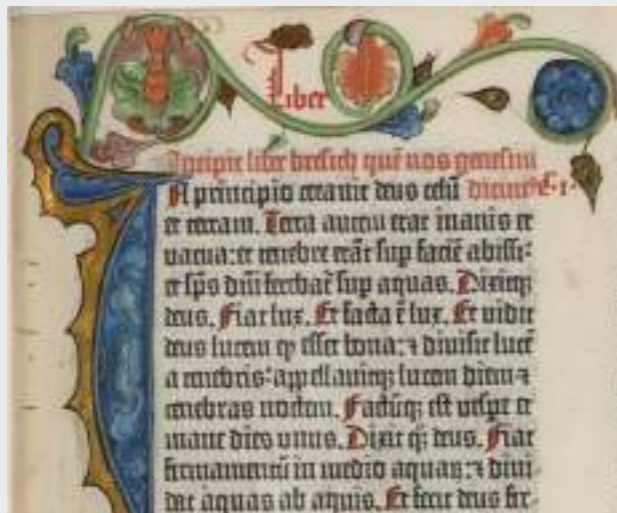 Liber
Incipit liber bresich quē nos genesim
In principio creavit deus celū dicim⁹ C·1·
et terram. Terra autem erat inanis et
vacua: et tenebre erāt sup faciē abissi:
et sp̄s dn̄i ferebat̄ sup aquas. Dixitq;
deus. Fiat lux. Et facta ē lux. Et vidit
deus lucem ꝙ esset bona: ⁊ divisit lucē
a tenebris: appellavitq; lucem diem ⁊
tenebras noctem. Factūq; est vespe et
mane dies unus. Dixit q̄; deus. Fiat
firmamentū in medio aquar̄: ⁊ divi
dat aquas ab aquis. Et fecit deus fir-